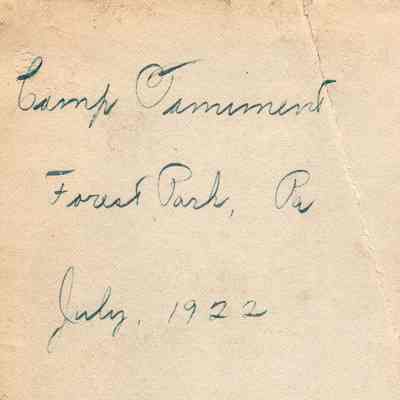 Camp Tamiment
Forest Park, Pa
July, 1922